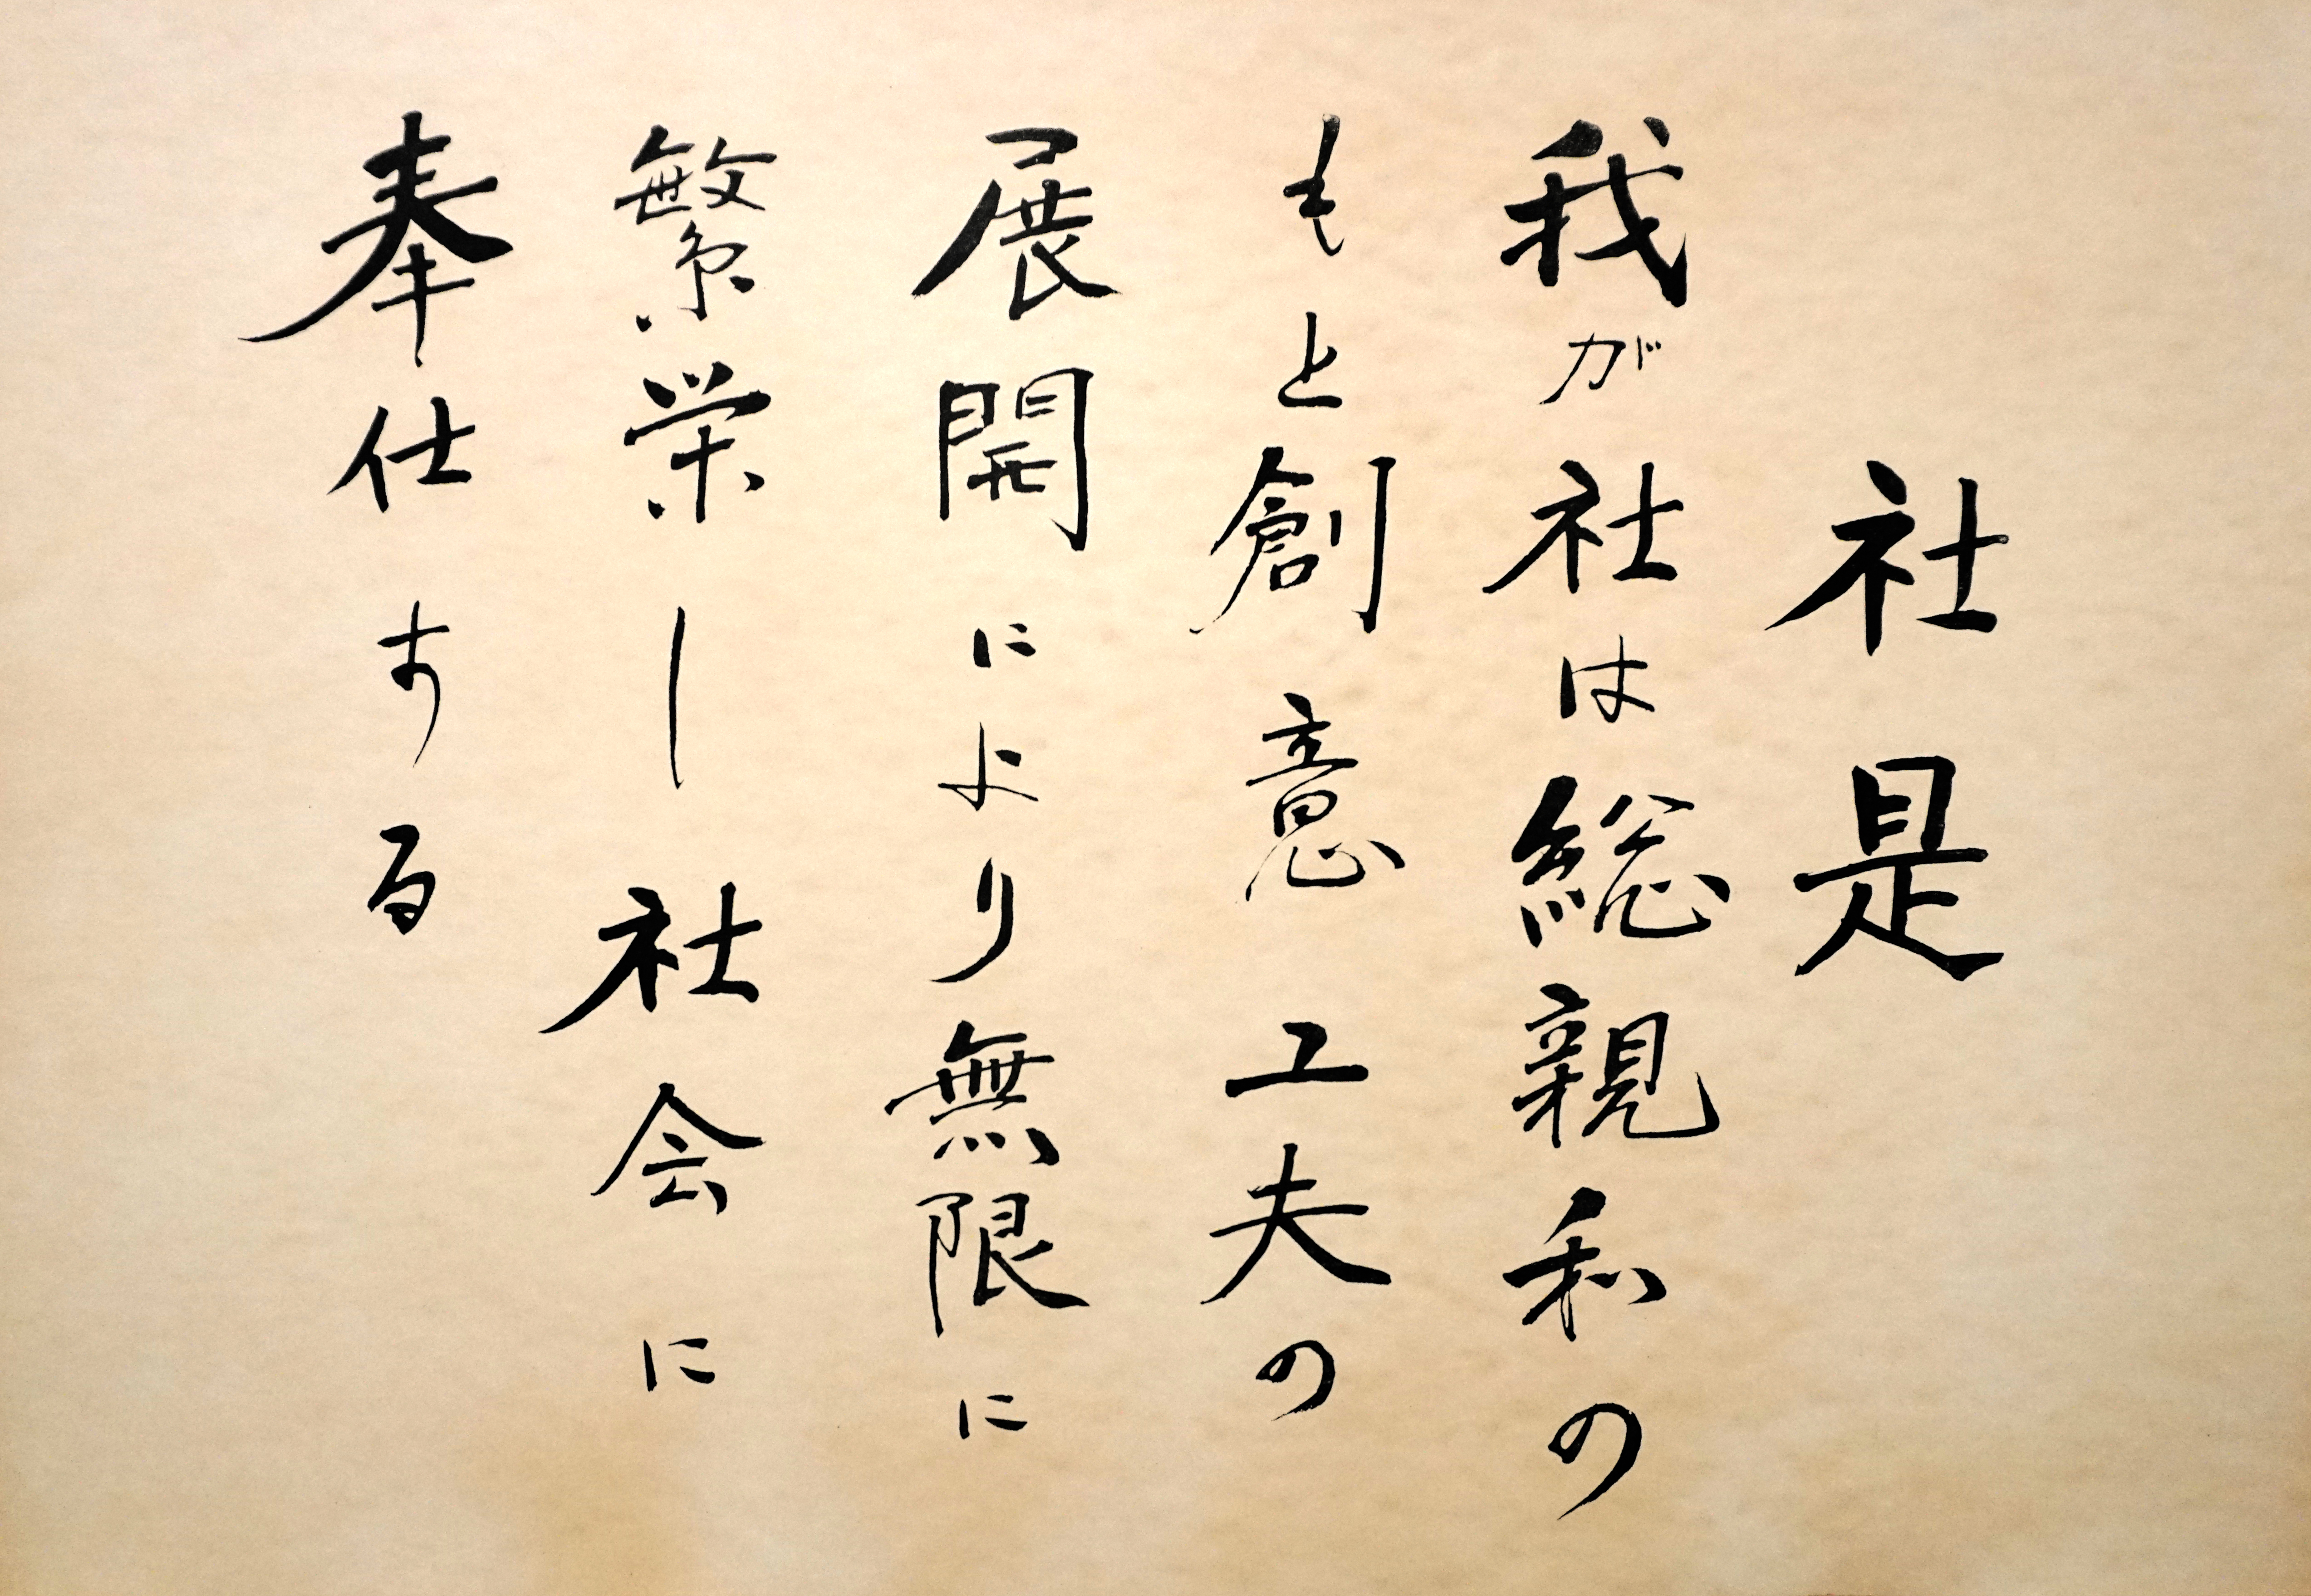 社是
我が社は総親和の
もと創意工夫の
展開により無限に
繁栄し社会に
奉仕する